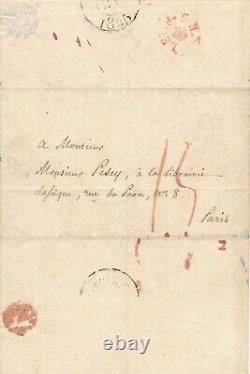 1825
15
A Monsieur
Monsieur Pesey, à la librairie
classique, rue du Paon, N° 8.
Paris
© ebay